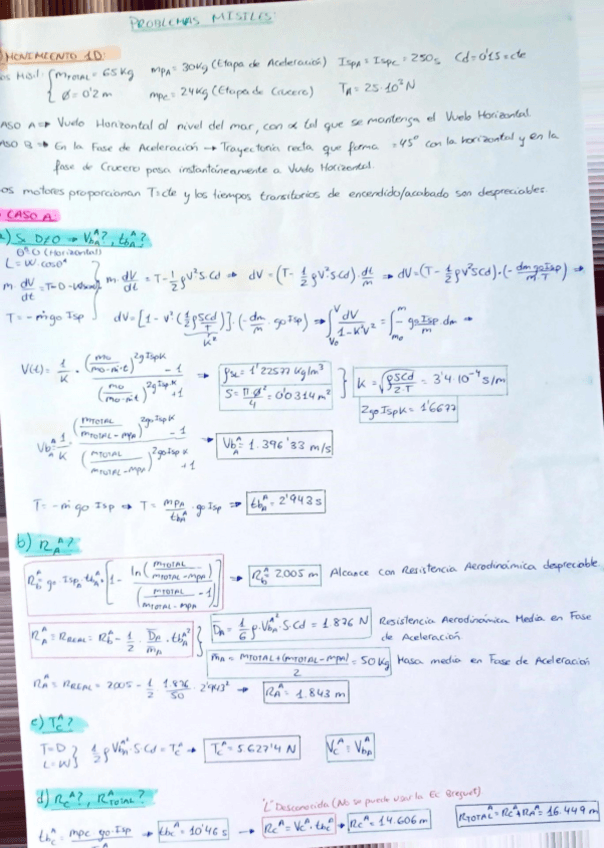 PROBLEMAS MISILES:
MOVIMIENTO 1D:
Misil: { mTOTAL = 65 Kg mPA = 30Kg (Etapa de Aceleración) IspA = Ispc = 250s Cd = 0'15 = cte
Ø = 0'2 m mpc = 24Kg (Etapa de Crucero) TA = 25·10³ N
ASO A → Vuelo Horizontal al nivel del mar, con α tal que se mantenga el Vuelo Horizontal
ASO B → En la Fase de Aceleración → Trayectoria recta que forma 45° con la horizontal y en la
fase de Crucero pasa instantáneamente a Vuelo Horizontal.
os motores proporcionan T=cte y los tiempos transitorios de encendido/acabado son despreciables.
CASO A:
a) Si D≠0 ⇒ VbA^A?, tbA^A?
θ=0 (Horizontal)
L = W·cosθ
m dV/dt = T-D-
T = -ṁ go Isp
} m dV/dt = T - 1/2 ρV²SCd ⇒ dV = (T - 1/2 ρV²SCd)·dt/m ⇒ dV = (T - 1/2 ρV²SCd)·(-dm go Isp/m·T) ⇒
dV = [1 - V²(1/2 ρSCd/T)]·(-dm/m · go Isp) ⇒ ∫Vo^V dV/1-K²V² = ∫mo^m -go Isp/m dm ⇒
K²
V(t) = 1/K · (mo/mo-ṁ·t)^2gIspK - 1 / (mo/mo-ṁt)^2gIspK + 1 ⇒ ρSL = 1'22577 Kg/m³
S = π·Ø²/4 = 0'0314 m² } K = √ρSCd/2·T = 3'4·10⁻⁴ s/m
2goIspK = 1'6677
VbA^A = 1/K · (mTOTAL/mTOTAL-mPA)^2goIspK - 1 / (mTOTAL/mTOTAL-mPA)^2goIspK + 1 ⇒ VbA^A = 1.396'33 m/s
T = -ṁ go Isp ⇒ T = mPA/tbA^A · go Isp ⇒ tbA^A = 2'943 s
b) RA^A?
Rb^A = go·IspA·tbA^A·[1 - ln(mTOTAL/mTOTAL-mPA)/(mTOTAL/mTOTAL-mPA - 1)] ⇒ Rb^A = 2005 m Alcance con Resistencia Aerodinámica despreciable
RA^A = RREAL = Rb^A - 1/2 · DA/mA · tbA^A² } DA = 1/6 ρ·VbA^A²·S·Cd = 1.876 N Resistencia Aerodinámica Media en Fase
de Aceleración
mA = mTOTAL+(mTOTAL-mPA)/2 = 50 Kg Masa media en Fase de Aceleración
RA^A = RREAL = 2005 - 1/2 · 1.876/50 · 2'943² → RA^A = 1.843 m
c) Tc^A?
T=D
L=W } 1/2 ρ VbA^A² S Cd = Tc^A → Tc^A = 5.627'4 N Vc^A = VbA^A
d) Rc^A?, RTOTAL^A?
"L" Desconocida (No se puede usar la Ec Breguet)
tbc^A = mpc·go·Isp → tbc^A = 10'46 s → Rc^A = Vc^A·tbc^A → Rc^A = 14.606 m RTOTAL^A = Rc^A+RA^A = 16.449 m